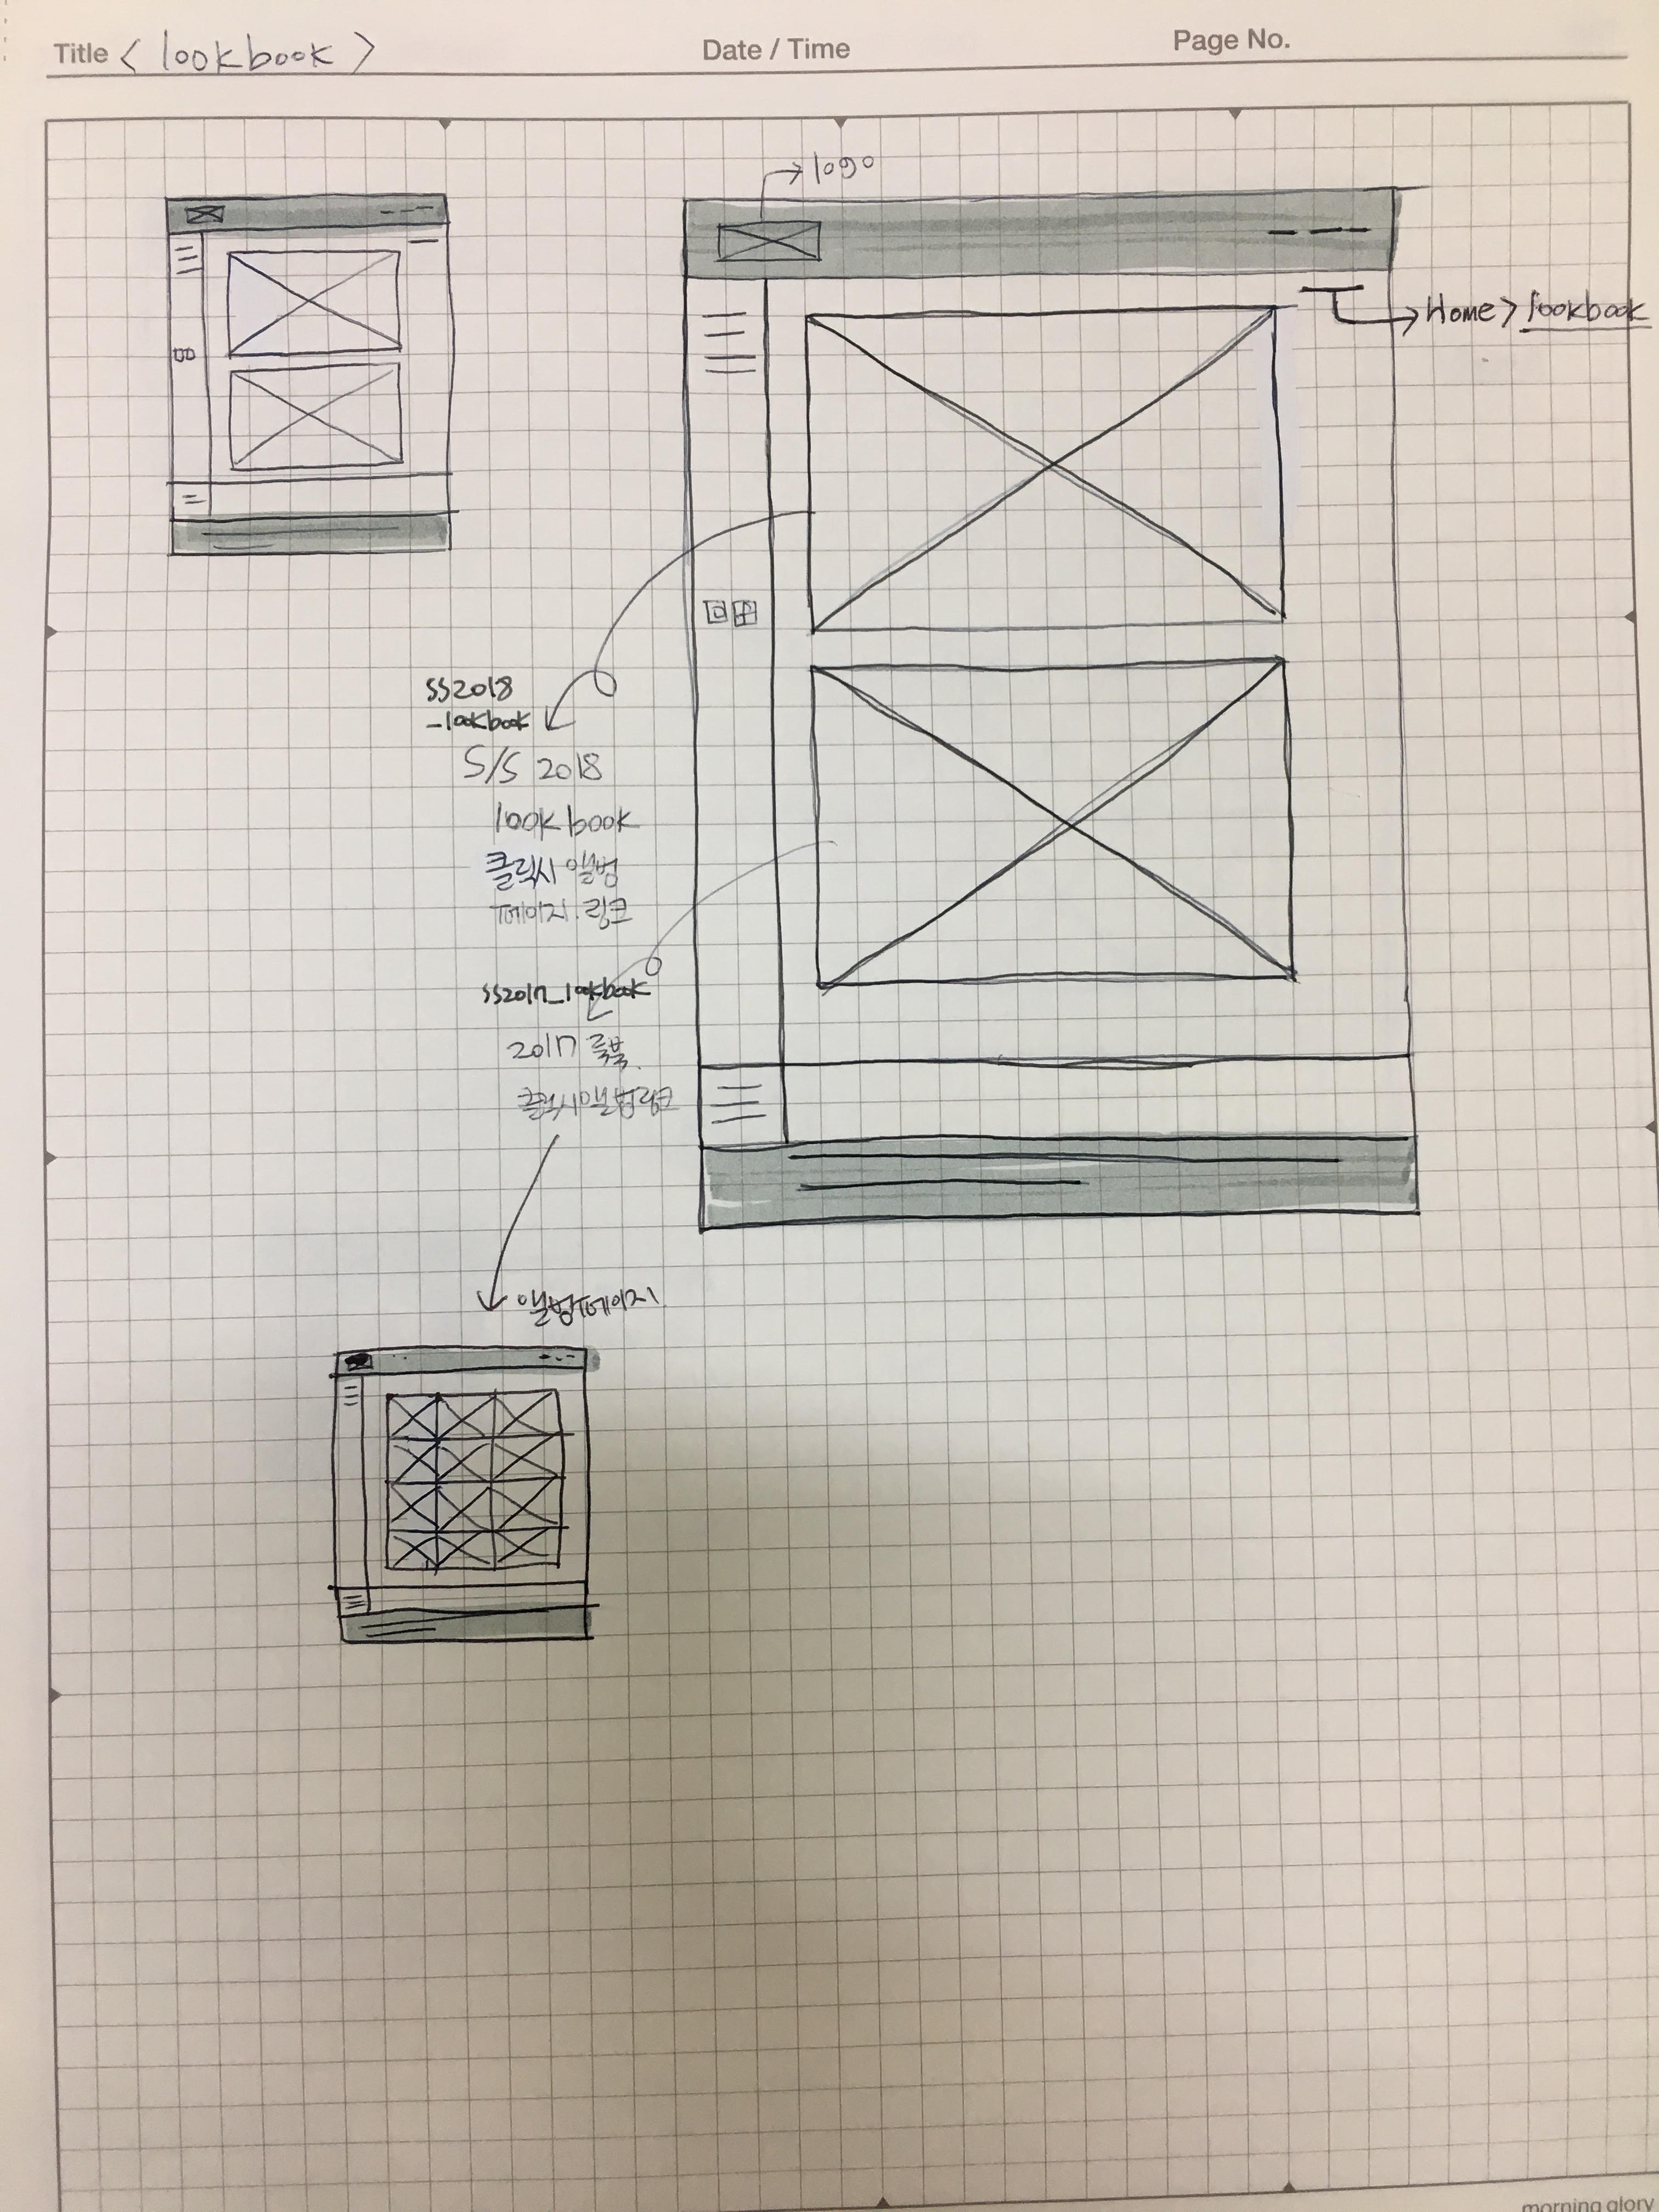 Title < lookbook >
Date / Time
Page No.
logo
Home > lookbook
SS2018
_lookbook
S/S 2018
lookbook
클릭시 앨범
페이지 링크
SS2017_lookbook
2017 룩북.
클릭시 앨범 링크
앨범페이지
morning glory